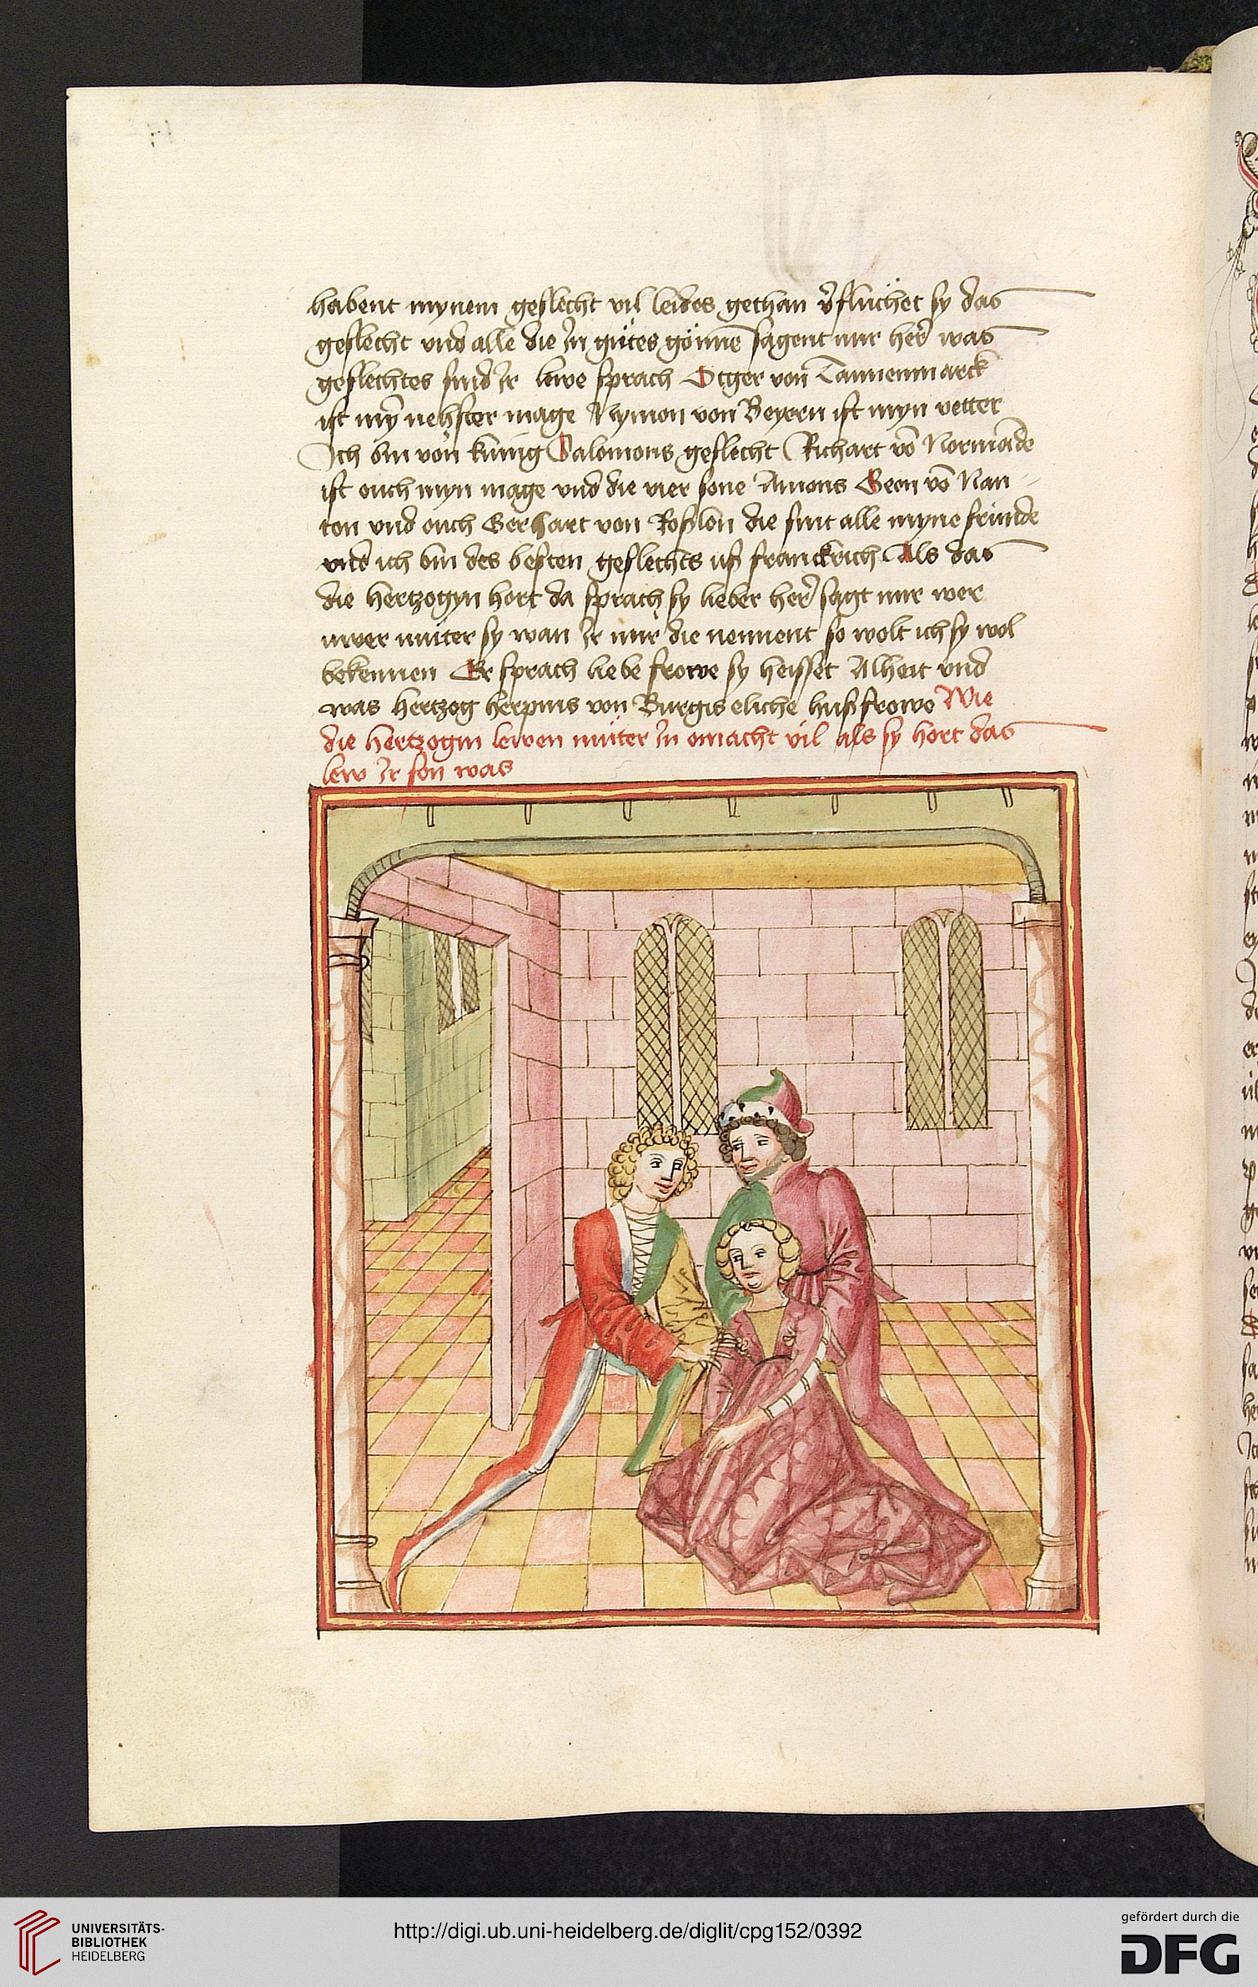 habent mynem geslecht vil leides gethan v̄fluchet sy das
geslecht vnd alle die In gůtes gönnē sagent mir her̄ was
geslechtes sind Ir lewe sprach Otger von Tannenmarck
ist mȳ nehster mage Nymon von Beyern ist myn vetter
Ich bin von kunig Salomons geslecht Richart vō Normādẽ
ist ouch myn mage vnd die vier sone Amons Gern vō Nan
ton vnd ouch Gerhart von Roßlon die sint alle myne frunde
vnd ich bin des besten geslechts uß franckrich Als das
die hertzogyn hort da sprach sy lieber her̄ sagt mir wer
uwer můter sy wan Ir mir die nennent so wolt ich sy wol
bekennen Er sprach liebe frowe sy heisset Alheit vnd
was hertzog herpins von Burgis eliche hußfrowe Wie
die hertzogin lewen můter In omacht vil als sy hort das
lew Ir son was
UNIVERSITÄTS-
BIBLIOTHEK
HEIDELBERG
http://digi.ub.uni-heidelberg.de/diglit/cpg152/0392
gefördert durch die
DFG